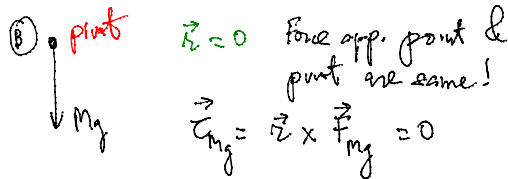 B pivot r⃗ = 0 Force app. point &
pivot are same!
Mg τ⃗Mg = r⃗ × F⃗Mg = 0